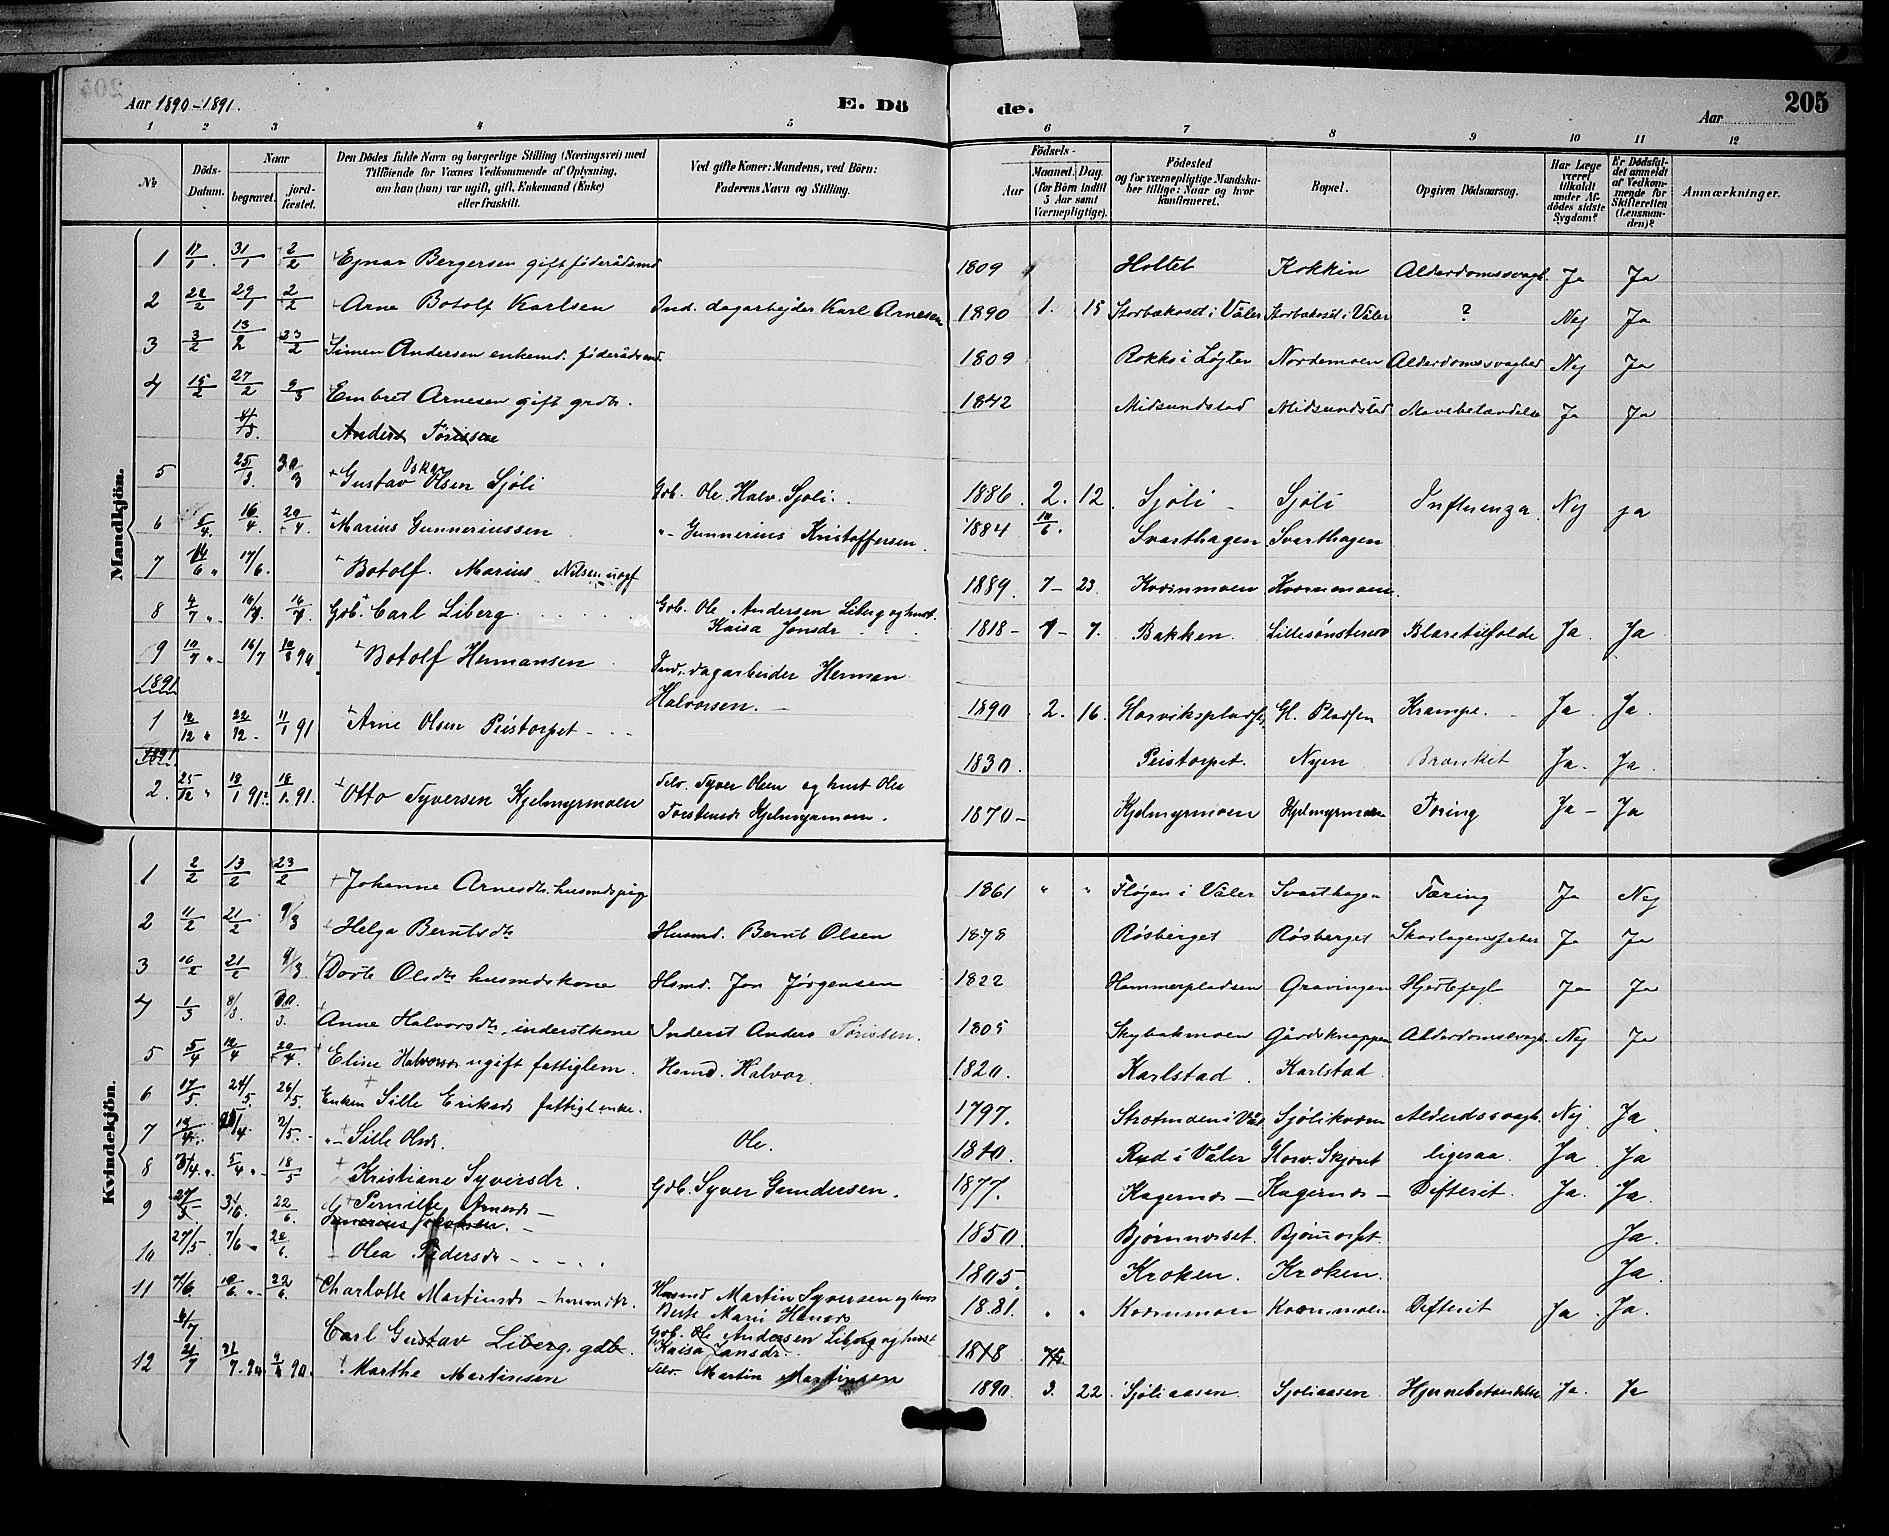 Aar 1890-1891.
E. Dö
de.
Aar
205
1 2 3 4 5 6 7 8 9 10 11 12
№
Döds-Datum.
Naar
begravet.
jord-fæstet.
Den Dödes fulde Navn og borgerlige Stilling (Næringsvei) med
Tilföiende for Voxnes Vedkommende af Oplysning,
om han (hun) var ugift, gift, Enkemand (Enke)
eller fraskilt.
Ved gifte Koner: Mandens, ved Börn:
Faderens Navn og Stilling.
Födsels-
Aar
Maaned. Dag.
(for Börn indtil
5 Aar samt
Værnepligtige).
Födested
og for værnepligtige Mandska-
ber tillige: Naar og hvor
konfirmeret.
Bopæl.
Opgiven Dödsaarsag.
Har Læge
været
tilkaldt
under Af-
dödes sidste
Sygdom?
Er Dödsfal-
det anmeldt
af Vedkom-
mende for
Skifteretten
(Lensman-
den)?
Anmærkninger.
Mandkjön.
1 17/1. 31/1 2/2 Ejnar Bergersen gift föderådsmd 1809 Holtet Kokkin Alderdomssvagh. Ja Ja
2 29/1 2/2 Arne Botolf Karlsen Ind. dagarbejder Karl Arnesen 1890 1. 15 Storbækaset i Våler Storbækaset i Våler ? Nej Ja
3 3/2 13/2 23/2 Simen Andersen enkemd. föderådsmd. 1809 Rokko i Løjten Nordemoen Alderdomssvaghed Nej Ja
4 15/2 27/2 9/3 Embret Arnesen gift grdbr. 1842 Midsundstad Midsundstad Mavebetændelse Ja Ja
Anders Törissen
5 25/3. 30/3 Gustav Oskar Olsen Sjöli Gdb. Ole Halv. Sjöli. 1886. 2. 12. Sjöli - Sjöli Influenza. Nej ja
6 5/4. 16/4. 20/4. Marius Gunneriussen "- Gunnerius Kristoffersen. 1884 Svarthagen Svarthagen
7 17/6. Botolf. Marius Nilsen 1889. 7- 23. Kvernmoen Kvernmoen.
8 4/7 " 16/7. 16/7 Gdb. Carl Liberg Gdb. Ole Andersen Liberg og hust.
Kaisa Jonsdr 1818- 7. Bakken. Blæretilfælde Ja Ja
9 10/7 " 16/7 90. Botolf Hermansen Ind. dagarbeider Herman
Halvorsen. - 1890 2. 16. Krampe. Ja Ja.
1891
1 12/12 " 22/12 - 11/1 91 Arne Olsen Peistorpet - - 1830. Peistorpet. Nyen Ja. Ja.
1891
2. 25/12 " 18/1 91. 18/1. 91. Otto Syversen Kjelmyrmoen Selv. Syver Olsen og hust Olea
Torstensdr Kjelmyrmoen. 1870- Kjelmyrmoen Kjelmyrmoen Tæring Ja - Ja
Kvindekjön.
1 2/2 13/2 23/2 Johanne Arnesdtr. husmdspige 1861 " " Fløjen i Våler Svarthagen Tæring Ja Nej
2 11/2 21/2 9/3 Helga Berntsdtr Husmd. Bernt Olsen 1878 Røsberget Røsberget Skarlagensfeber Ja Ja
3 10/2 21/2 9/3 Dorte Olsdtr husmdskone Hsmd. Jon Jørgensen 1822 Hammerpladsen Gravingen Hjertefejl Ja Ja
4 1/3 8/3. 30/3. Anne Halvorsdtr. inderstkone Inderst Anders Törissen. 1805 Skybakmoen Gårdsknappen Alderdomssvagh. Nej Ja
5 5/4 12/4 20/4. Eline Halvorsdr ugift fattiglem. Hsmd. Halvor 1820. Karlstad. Karlstad
6 17/5 24/5. 26/5. Enken Sille Eriksdr fattigl enke. 1797. Sjölikvern Alderdssvagh. Nej. Ja.
7 2/5. "- Sille Olsdr. Ole. 1810. Rud i Våler ligesaa. Ja Ja
8 5/4 " 18/5 Kristiane Syversdr. Gdb. Syver Gundersen. 1877. Kagernes - Kagernes - Difterit. Ja. Ja.
9 22/6. Pernille Arnesdr - 1850. Bjørnneset. Ja.
10 27/5. 7/6 " 22/6. Olea Pedersdr - - - 1805. Kroken. Kroken. Ja.
11 7/6 10/6 " 22/6. Charlotte Martinsdr - Husmd Martin Syversen og hust
Berte Marie Hansdr 1881. " " Kvernmoen Kvernmoen Difterit Ja. Ja.
Carl Gustav Liberg. gdb. Gdb. Ole Andersen Liberg og hust
Kaisa Jonsdr. 1818
12 21/7 31/7. 90 90. Marthe Martinsen Selv. Martin Martinsen 1890. 3. 22. Sjöliaasen. Sjöliaasen Hjernebetændelse Ja. Ja